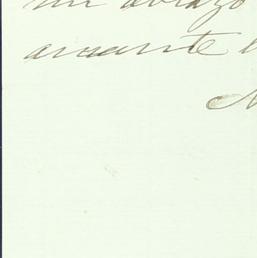 un abrazo
amante